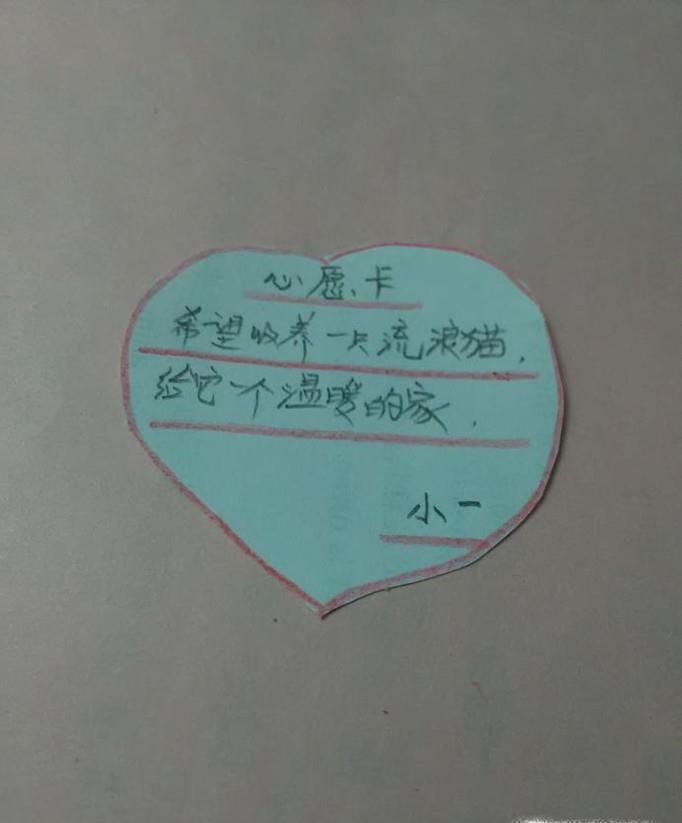 心愿卡
希望收养一只流浪猫，
给它一个温暖的家．
小一